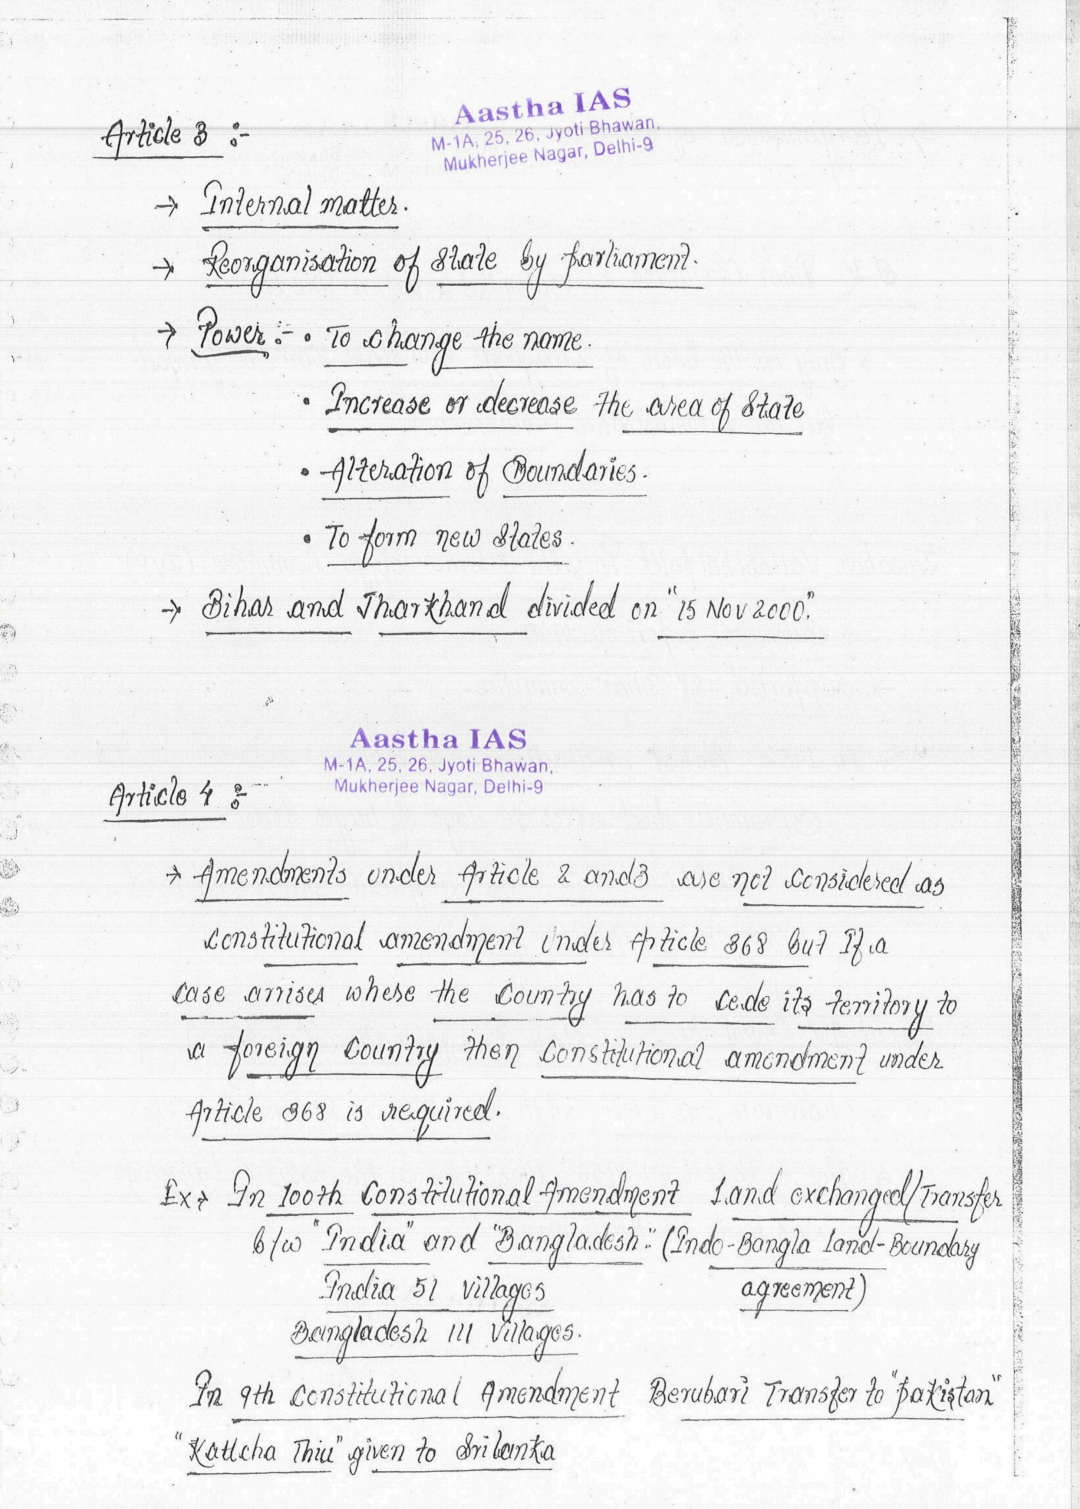 Aastha IAS
M-1A, 25, 26, Jyoti Bhawan,
Mukherjee Nagar, Delhi-9
Article 3 :-
→ Internal matter.
→ Reorganisation of State by parliament.
→ Power :- • To change the name.
• Increase or decrease the area of State
• Alteration of Boundaries.
• To form new States.
→ Bihar and Jharkhand divided on "15 Nov 2000".
Aastha IAS
M-1A, 25, 26, Jyoti Bhawan,
Mukherjee Nagar, Delhi-9
Article 4 :-
→ Amendments under Article 2 and 3 are not considered as
constitutional amendment under Article 368 but If a
case arrises where the country has to cede its territory to
a foreign country then constitutional amendment under
Article 368 is required.
Ex→ In 100th Constitutional Amendment Land exchanged/Transfer
b/w "India" and "Bangladesh". (Indo-Bangla Land-Boundary
India 51 villages agreement)
Bangladesh 111 villages.
In 9th constitutional Amendment Berubari Transfer to "pakistan"
"Katlcha Thiu" given to Srilanka